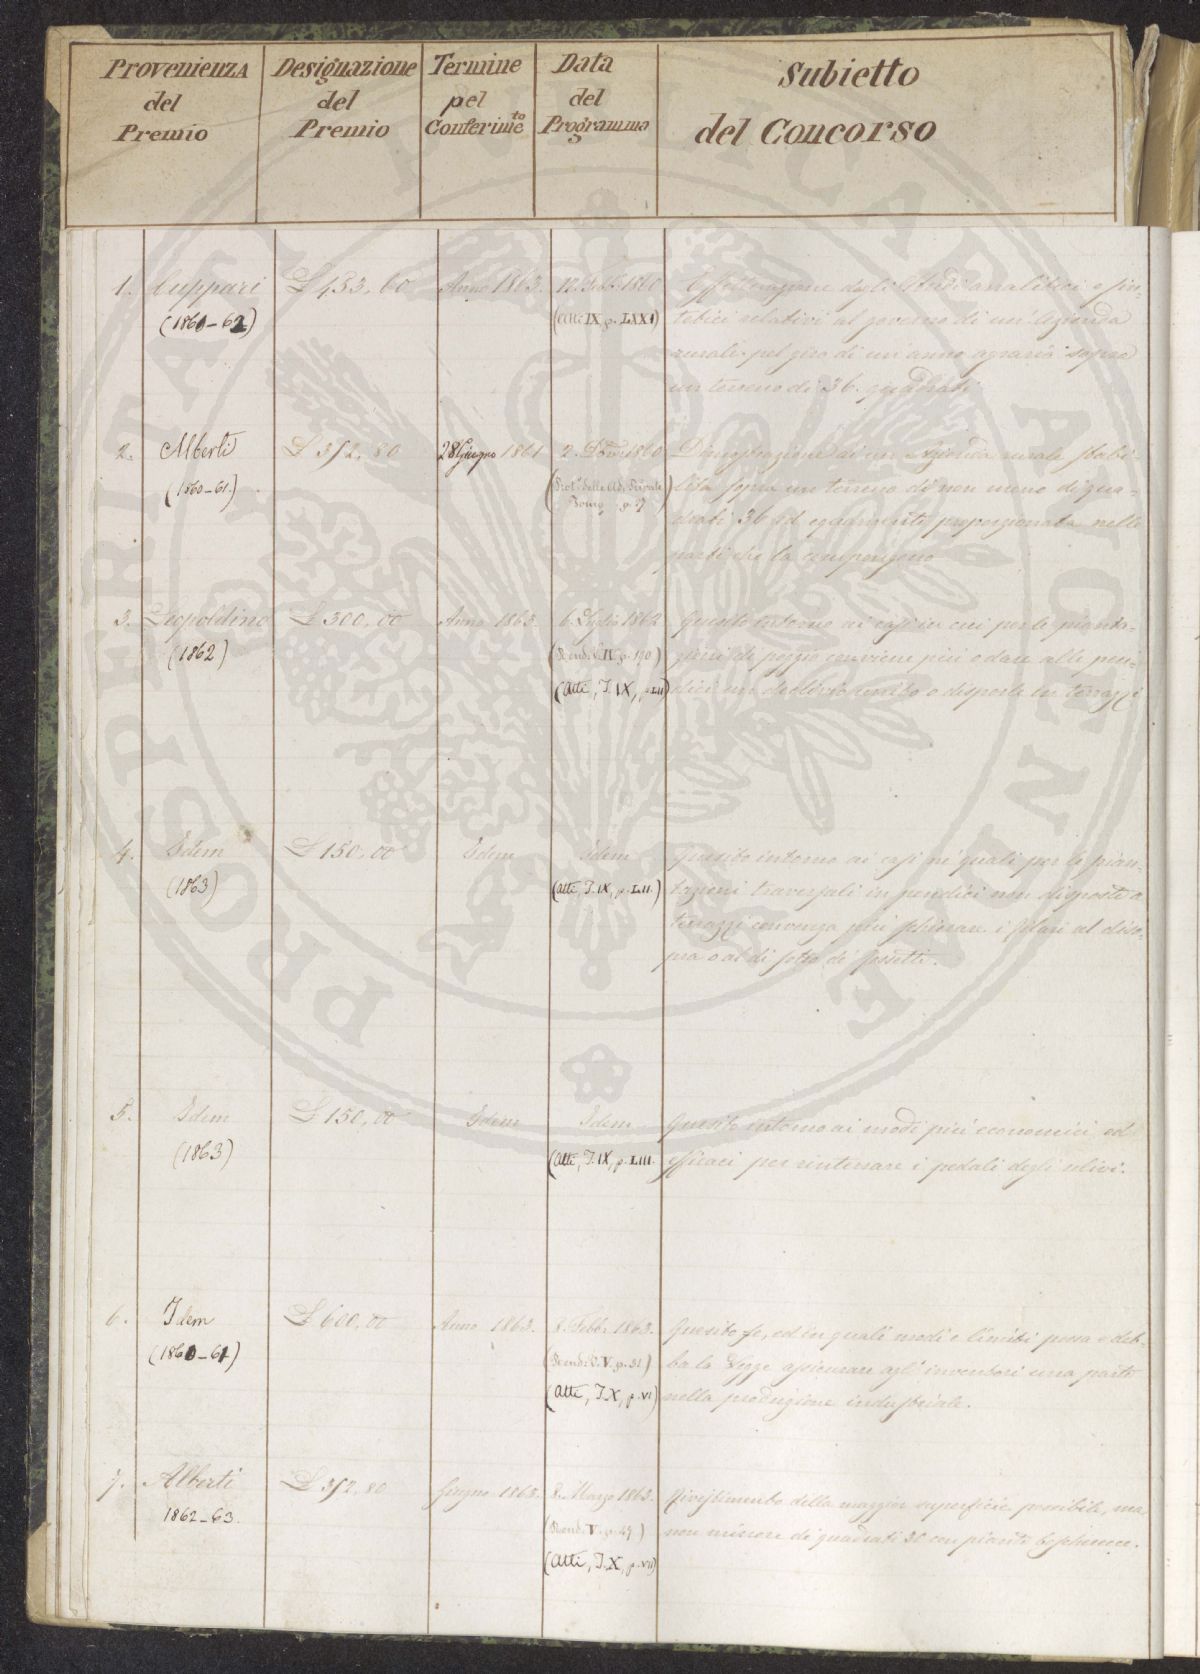 Provenienza
del
Premio
Designazione
del
Premio
Termine
pel
Conferimto
Data
del
Programma
Subietto
del Concorso
1. Cuppari
(1861-62)
£ 453,60
Anno 1863.
1860
(Atti IX, p. LXXI)
Effettuazione degli Studi analitici e sin-
tetici relativi al governo di un' Azienda
rurale pel giro di un anno agrario sopra
un terreno di 36 quadrati
2. Alberti
(1860-61.)
£ 352,80
28 Giugno 1861
2. 1860
p. 57
Dimostrazione di un Azienda rurale stabi-
lita sopra un terreno di non meno di qua-
drati 36 ed egualmente proporzionata nelle
parti che la compongono
3. Leopoldino
(1862)
£ 300,00
Anno 1863.
6. Luglio 1862
(Rend. IV. p. 190)
(Atti, T. IX, p. LII)
Quesito intorno ai casi in cui per le pianta-
gioni di poggio conviene più o dare alle pen-
dici un declivio unito o disporle in terrazzi
4. Idem
(1863)
£ 150,00
Idem
Idem
(Atti, T. IX, p. LII.)
Quesito intorno ai casi ne' quali per le pian-
tazioni traversali in pendici non disposte a
terrazzi convenga più schierare i filari al diso-
pra o al di sotto de' fossetti.
5. Idem
(1863)
£ 150,00
Idem
Idem
(Atti, T. IX, p. LIII.
Quesito intorno ai modi più economici ed
efficaci per rinterrare i pedali degli ulivi.
6. Idem
(1860-61)
£ 600,00
Anno 1863.
8. Febb. 1863.
(Rend. V. p. 31)
(Atti, T. X, p. VI)
Quesito se, ed in quali modi e limiti possa e deb-
ba la Legge assicurare agl' inventori una parte
nella produzione industriale.
7. Alberti
1862-63.
£ 352,80
Giugno 1863.
8. Marzo 1863.
(Rend. V. p. 49)
(Atti, T. X, p. VII)
Rivestimento della maggior superficie possibile, ma
non minore di quadrati 30 con piante boschive.
PROSPERITATI PUBLICAE AUGENDAE